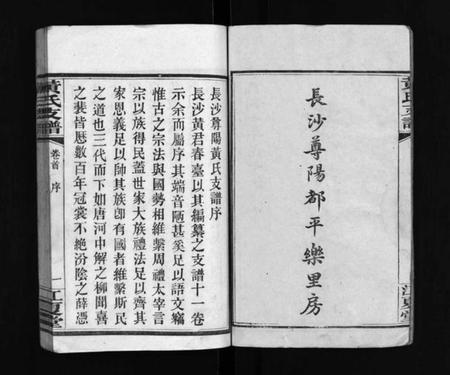 長沙尊陽都平樂里房
黃氏支譜
江夏堂
長沙尊陽黃氏支譜序
長沙黃君春臺以其編纂之支譜十一卷
示余而屬序其端音陋甚奚足以語文竊
惟古之宗法與國勢相維繫周禮太宰言
宗以族得民蓋世家大族禮法足以齊其
家恩義足以帥其族卽有國者維繫斯民
之道也三代而下如唐河中解之柳聞喜
之裴皆歷數百年冠裳不絶汾陰之薛憑
黃氏支譜
卷首 序
一
江夏堂